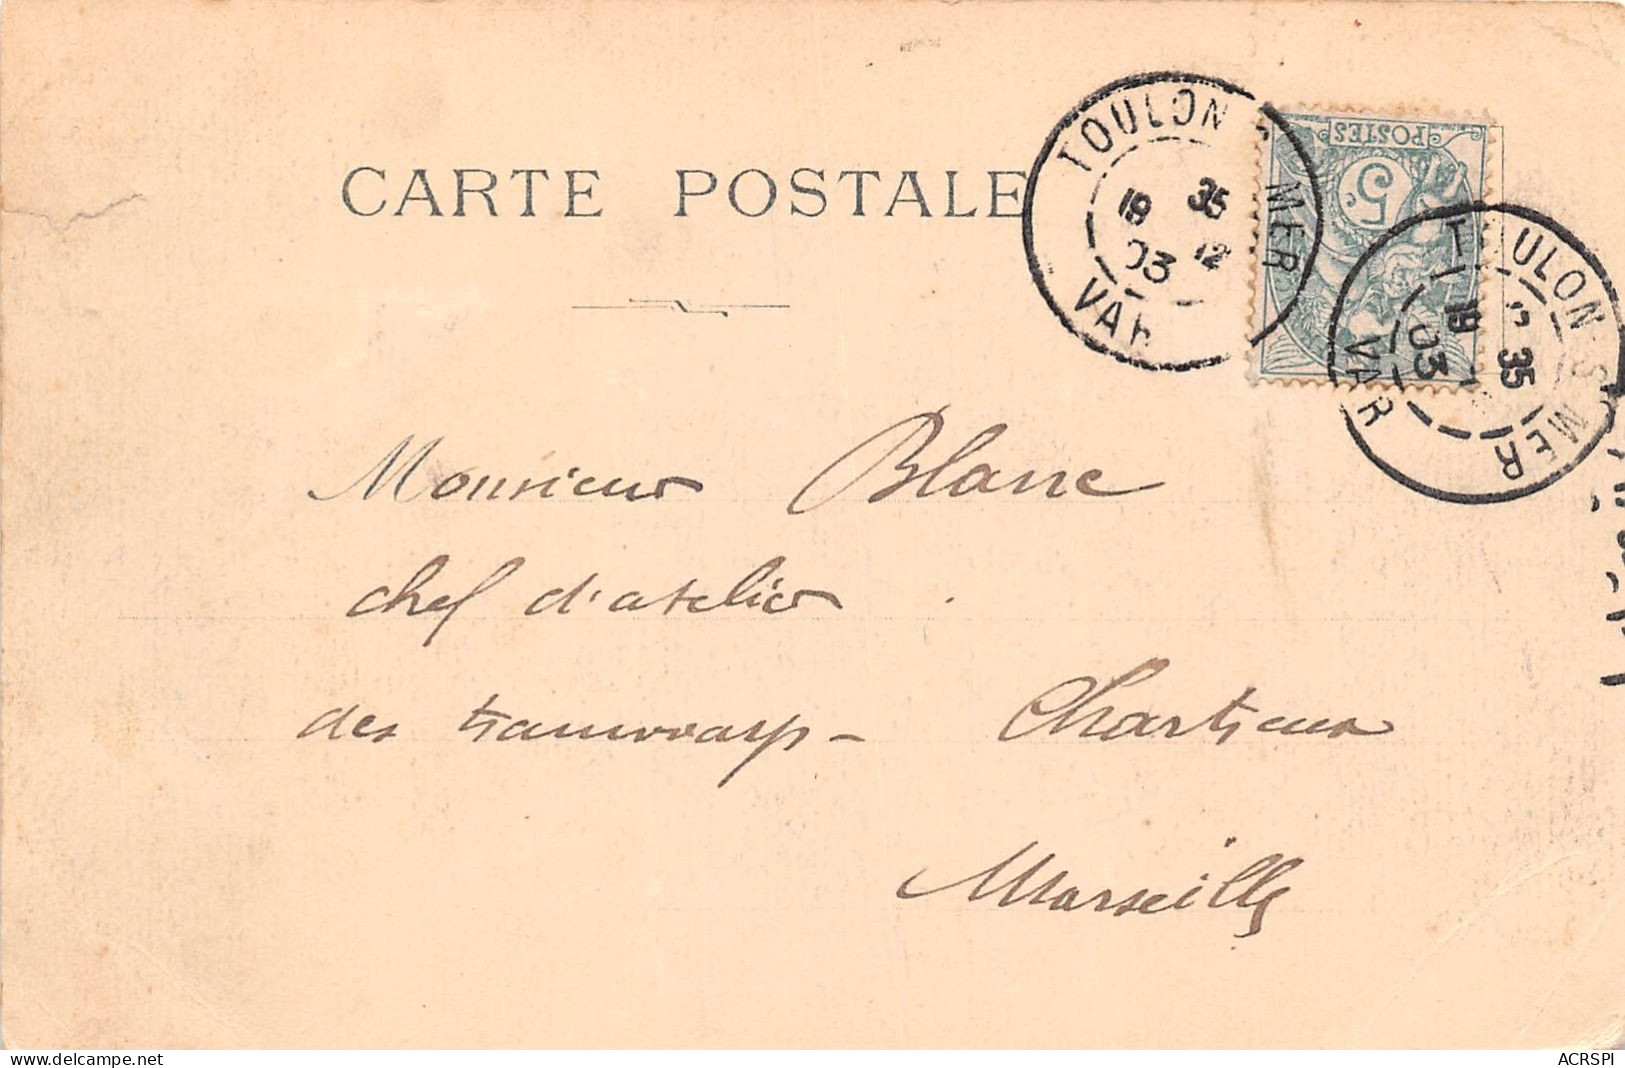 CARTE POSTALE
TOULON S MER
19 35
03 12
VAR
POSTES
5c
TOULON S MER
19 35
03
VAR
Monsieur Blanc
chef d'atelier
des tramways - Chartreux
Marseille
delcampe.net
ACRSPI